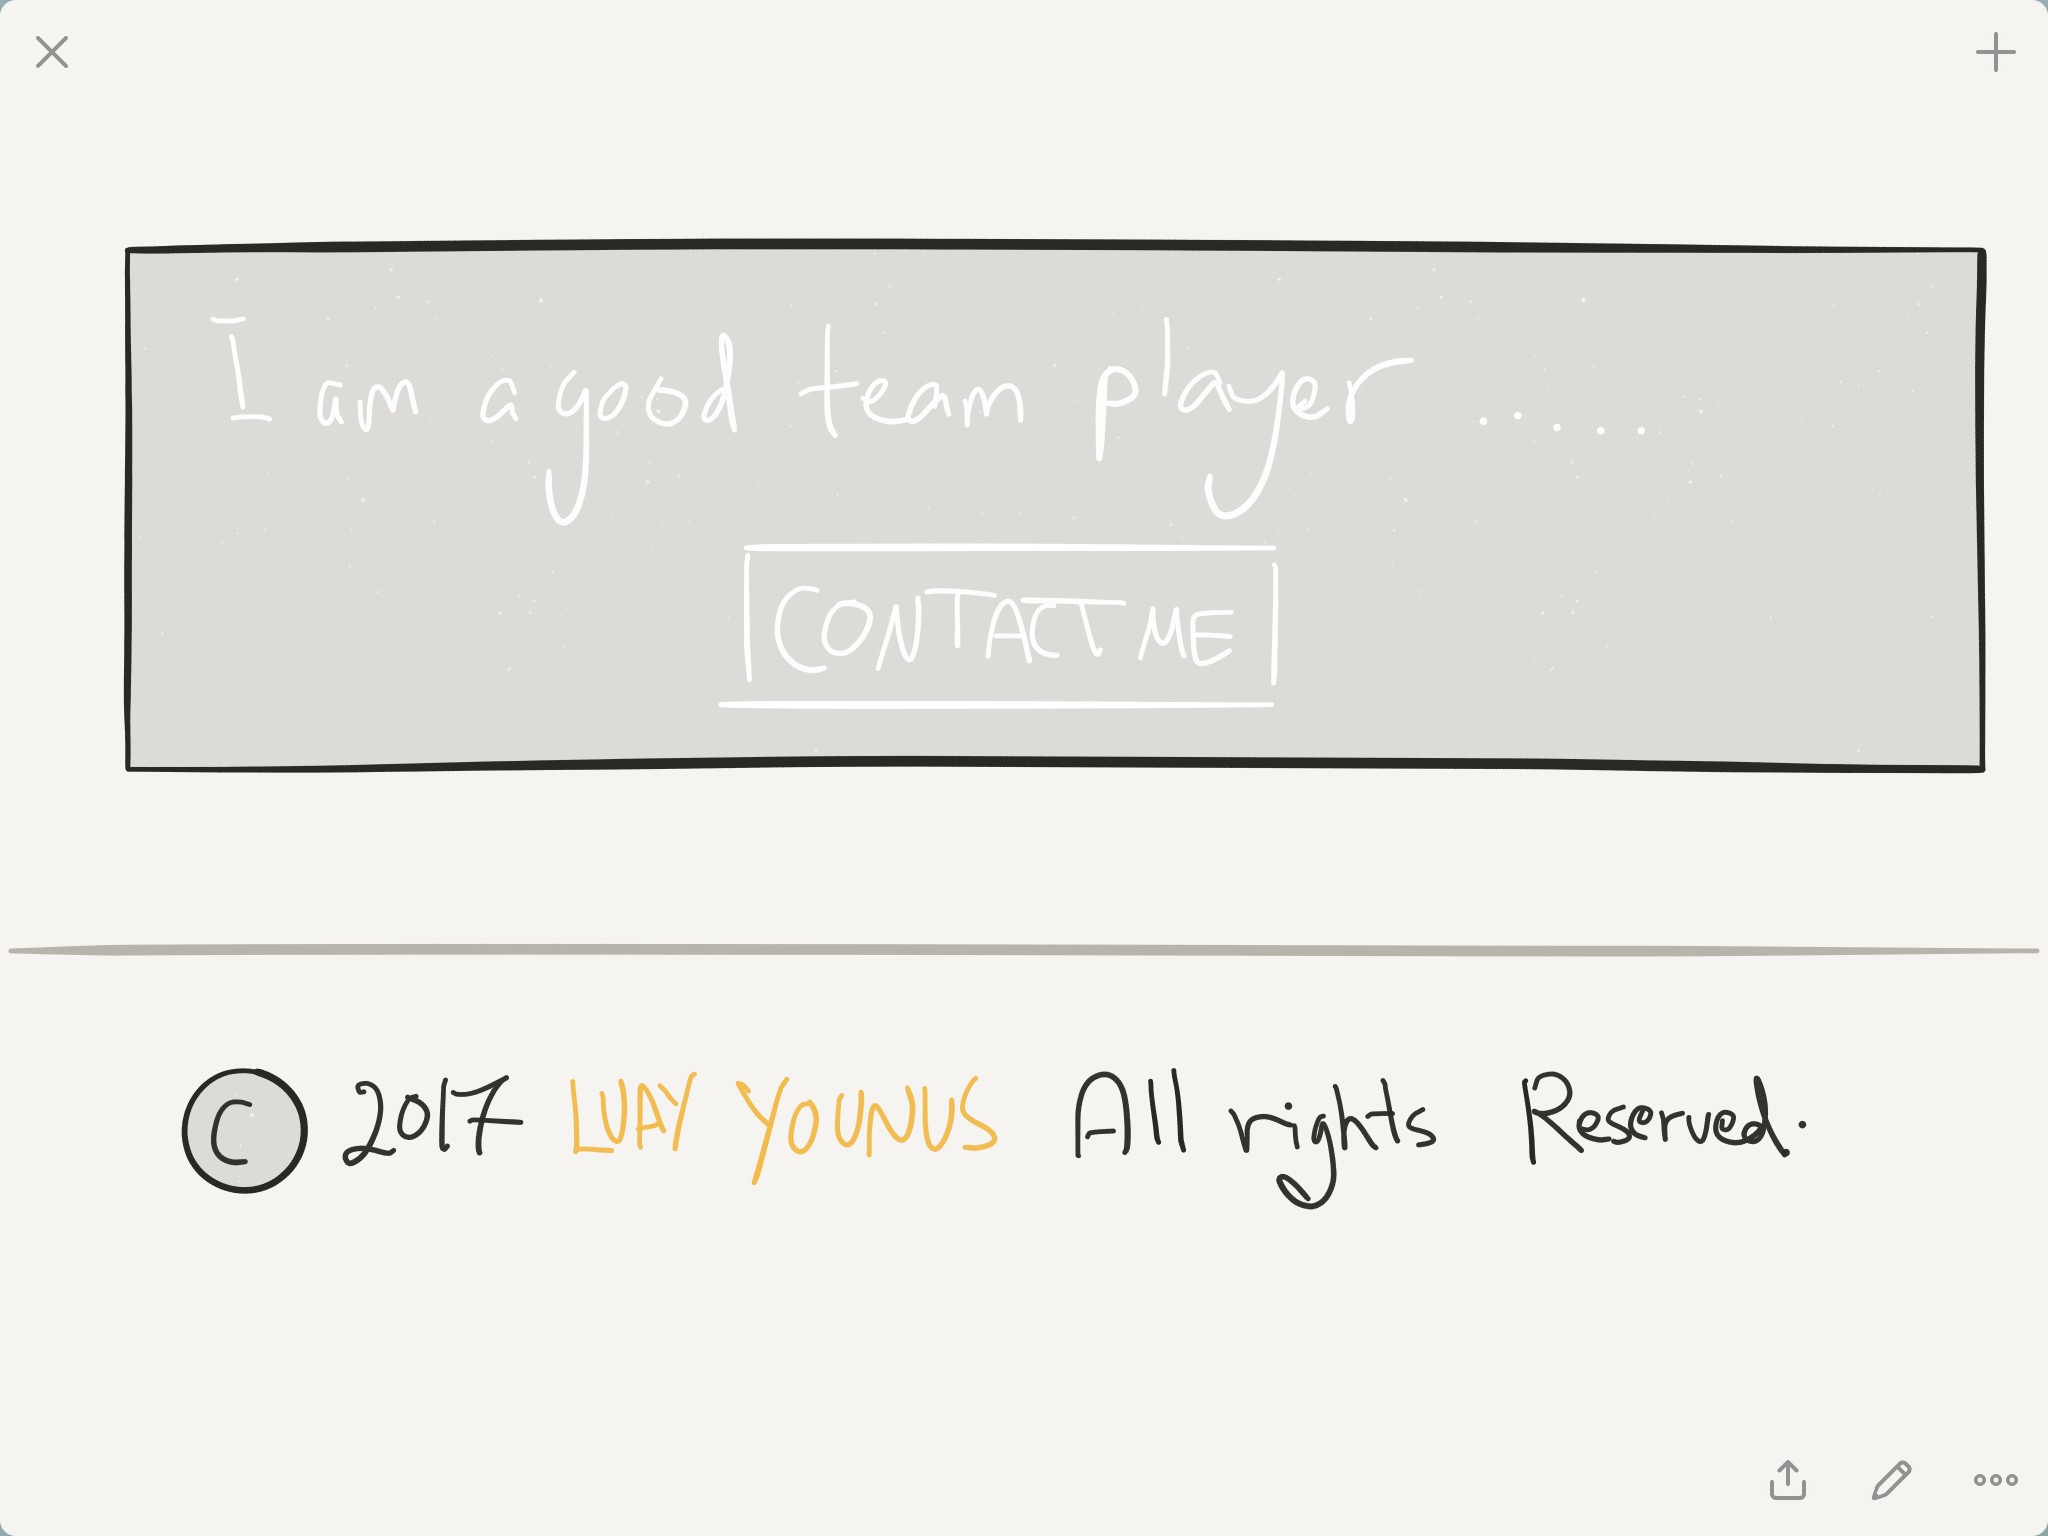 I am a good team player .....
CONTACT ME
© 2017 LUAY YOUNUS All rights Reserved.